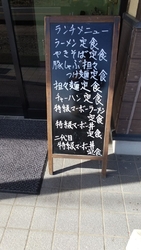 ランチメニュー
ラーメン定食
やきそば定食
豚しゃぶ担々
つけ麺定食
担々麺定食
チャーハン定食
特級マーボーラーメン
定食
特級マーボー丼
定食
二代目
特級マーボー丼
定食